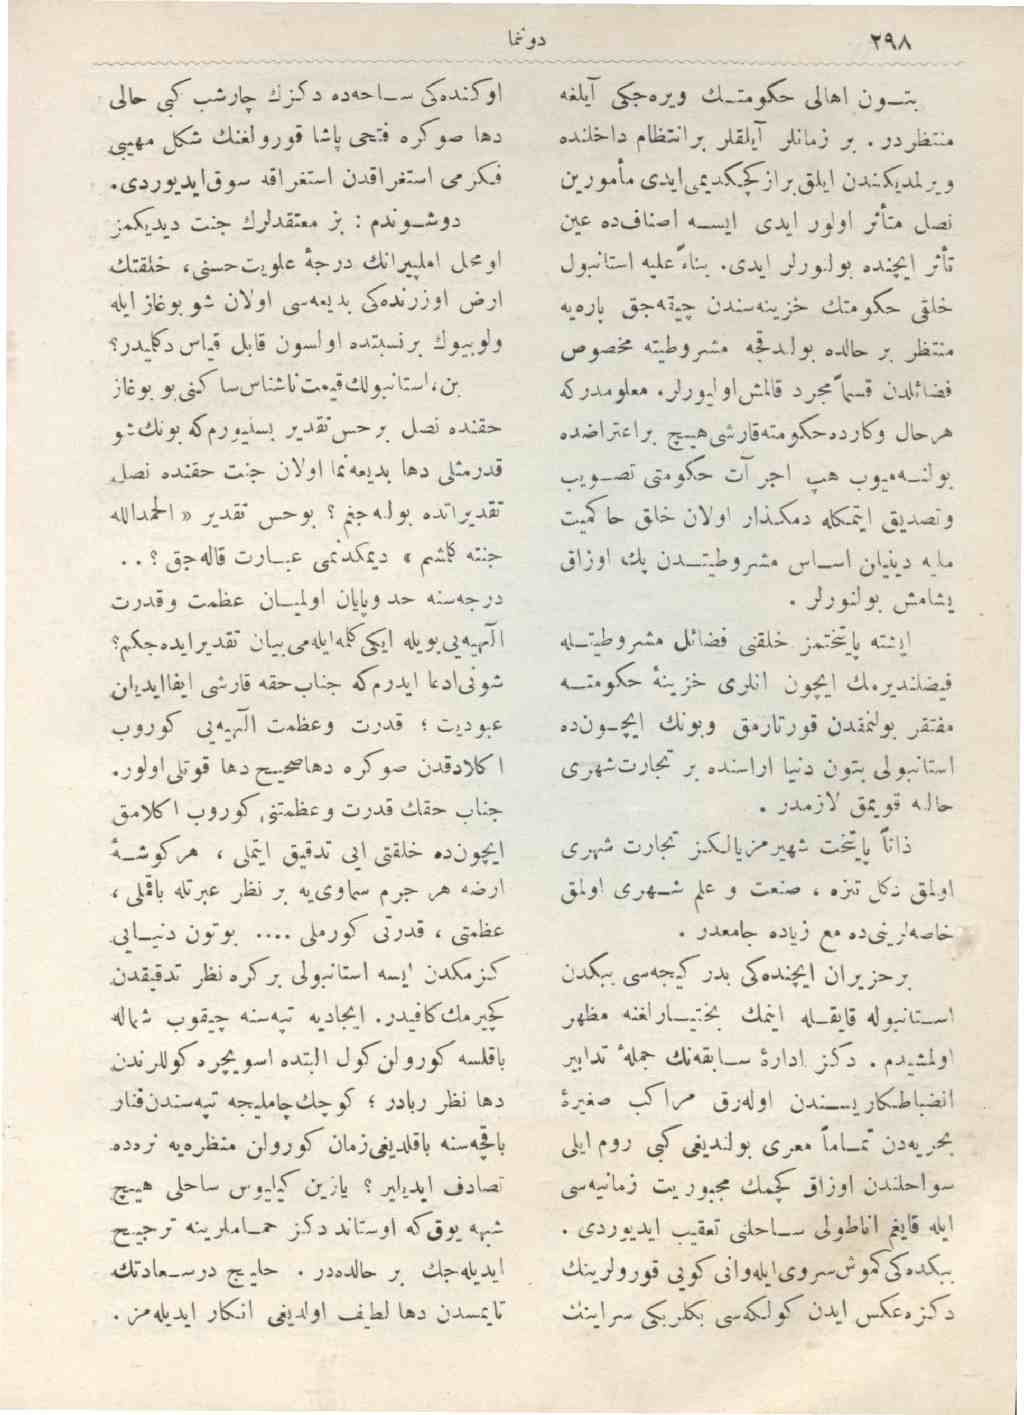 ٢٩٨
دوننما
بتون اهالى حكومتك ويره‌جكى آيلغه
منتظردر . بر زمانلر آيلقلر برانتظام داخلنده
ويرلمديكندن ايلق براز كچيكديمى ايدى مأمورين
نصل متأثر اولور ايدى ايسه اصناف‌ده عين
تأثر ايچنده بولنورلر ايدى. بناءً عليه استانبول
خلقى حكومتك خزينه‌سندن چيقه‌جق پاره‌يه
منتظر بر حالده بولندقجه مشروطيته مخصوص
فضائلدن قسماً مجرد قالمش اوليورلر. معلومدركه
هرحال وكارده حكومته قارشى هيچ براعتراضده
بولنه‌ميوب هپ اجر آت حكومتى تصويب
وتصديق ايتمكله دمكذار اولان خلق حاكميت
مليه دينيلن اساس مشروطيتدن پك اوزاق
يشامش بولنورلر .
ايشته پايتختمز خلقنى فضائل مشروطيتله
فيضلنديرمك ايچون انلرى خزينهٔ حكومته
مفتقر بولنمقدن قورتارمق وبونك ايچون‌ده
استانبولى بتون دنيا اراسنده بر تجارت شهرى
حالنه قويمق لازمدر .
ذاتاً پايتخت شهيرمز يالكز تجارت شهرى
اولمق دكل تنزه ، صنعت و علم شهرى اولمق
خاصه‌لرينى‌ده مع زياده جامعدر .
برحزيران ايچنده‌كى بدر كيجه‌سى ببكدن
استانبوله قايقله اينمك بختيارلغنه مظهر
اولمشيدم . دكز ادارهٔ سابقه‌نك جملهٔ تدابير
انضباطكاريسندن اوله‌رق مراكب صغيرهٔ
بحريه‌دن تماماً معرى بولنديغى كبى روم ايلى
سواحلندن اوزاق كچمك مجبوريت زمانيه‌سى
ايله قايغم اناطولى ساحلنى تعقيب ايديوردى .
ببكده‌كى كموش سروى ايله وانى كويى قورولرينك
دكزه عكس ايدن كولكه‌سى بكلربكى سراينك
اوكنده‌كى ساحه‌ده دكزك چارشب كبى حالى
دها صوكره فتحى پاشا قورولغنك شكل مهيبى
فكرمى استغراقدن استغراقه سوق ايديوردى.
دوشوندم : بز معتقدلرك جنت ديديكمز
اومحل املپيرانك درجهٔ علويت حسنى، خلقتك
ارض اوزرنده‌كى بديعه‌سى اولان شو بوغاز ايله
ولوبيوك برنسبتده اولسون قابل قياس دكليدر؟
بن، استانبولك قيمت ناشناس ساكنى بو بوغاز
حقنده نصل برحس تقدير بسليورم‌كه بونك شو
قدرمثلى دها بديعه‌نما اولان جنت حقنده نصل
تقديراتده بولنه‌جغم ؟ بوحس تقدير « الحمدالله
جنته كلشم » ديمكدنمى عبارت قاله‌جق ؟ . .
درجه‌سنه حد وپايان اولميان عظمت وقدرت
الٓهيه‌يى بويله ايكى كلمه ايله‌مى بيان تقدير ايده‌جكم؟
شونى ادعا ايدرم‌كه جناب حقه قارشى ايفا ايديلن
عبوديت ؛ قدرت وعظمت الٓهيه‌يى كوروب
اكلادقدن صوكره دها صحيح دها قوتلى اولور.
جناب حقك قدرت وعظمتنى كوروب اكلامق
ايچون‌ده خلقتى ايى تدقيق ايتملى ، هركوشهٔ
ارضه هر جرم سماوى‌يه بر نظر عبرتله باقملى ،
عظمتى ، قدرتى كورملى .... بوتون دنيايى
كزمكدن ايسه استانبولى بركره نظر تدقيقدن
كچيرمك كافيدر. ايجاديه تپه‌سنه چيقوب شماله
باقلسه كورولن كول البتده اسويچره كوللرندن
دها نظر ربادر ؛ كوچك چامليجه تپه‌سندن فنار
باقچه‌سنه باقلديغى زمان كورولن منظره‌يه نره‌ده
تصادف ايديلير ؟ يازين كيليوس ساحلى هيچ
شبهه يوق كه اوستاند دكز حماملرينه ترجيح
ايديله‌جك بر حالده‌در . خليج درسعادتك
تايمسدن دها لطيف اولديغى انكار ايديله‌مز .